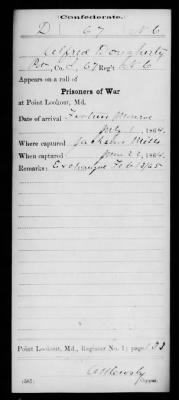 Confederate.
D 67 N C
Alfred Dougherty
Co. D, 67 Reg't N.C.
Appears on a roll of
Prisoners of War
at Point Lookout, Md.
Date of arrival Fortress Monroe
July 1, 1864.
Where captured Jackson Mills
When captured June 22, 1864.
Remarks: Exchanged Feb 13/65
Point Lookout, Md., Register No. 1; page
Copyist.